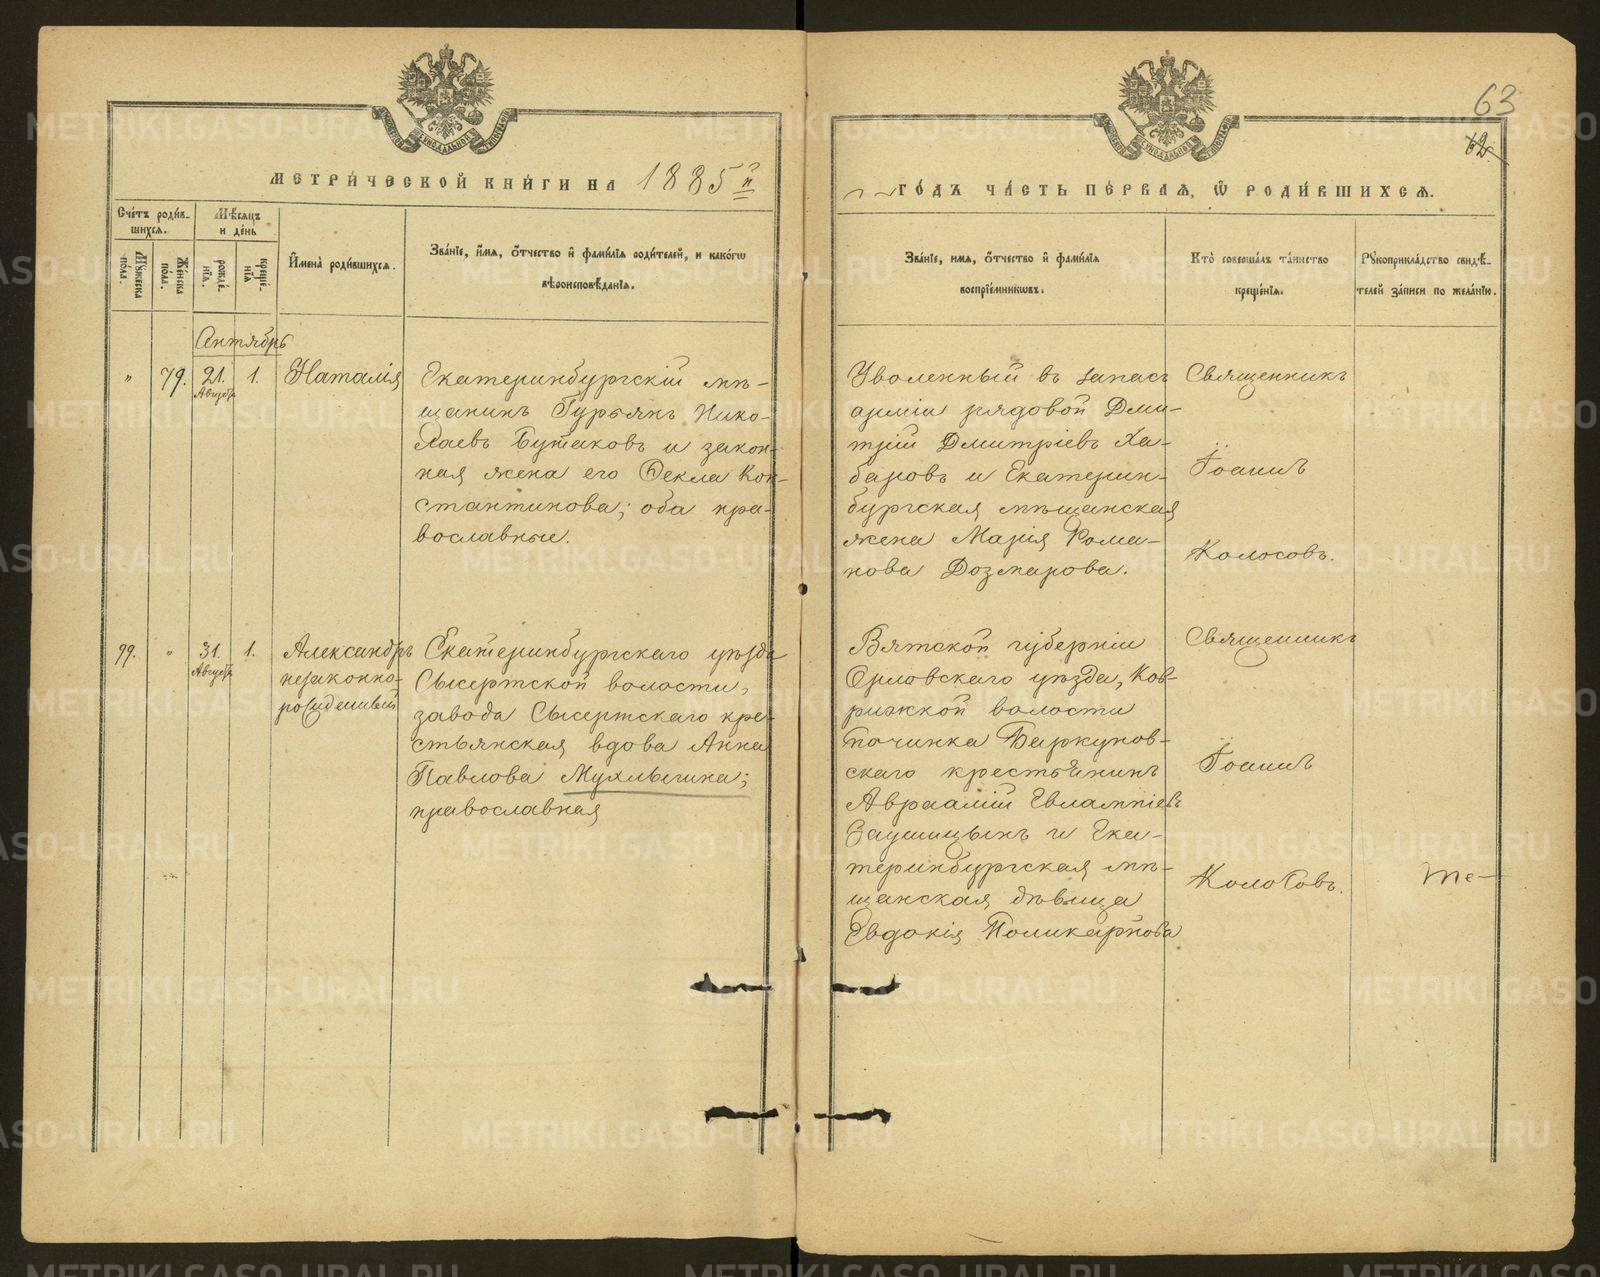 63
62
МЕТРИЧЕСКОЙ КНИГИ НА 1885 й
ГОДЪ ЧАСТЬ ПЕРВАЯ, Ѡ РОДИВШИХСЯ.
Счетъ родив-
шихся.
Мѣсяцъ
и день
Мужеска
пола.
Женска
пола.
рожде-
нія.
креще-
нія
Имена родившихся.
Званіе, имя, отчество и фамилія родителей, и какогѡ
вѣроисповѣданія.
Званіе, имя, отчество и фамилія
воспріемниковъ.
Кто совершалъ таинство
крещенія.
Рукоприкладство свидѣ-
телей записи по желанію.
Сентябрь
" 79. 21. 1. Наталія
Августа
Екатеринбургскій мѣ-
щанинъ Гурьянъ Нико-
лаевъ Бутаковъ и закон-
ная жена его Ѳекла Кон-
стантинова; оба пра-
вославные.
Уволенный въ запасъ
арміи рядовой Дми-
трій Дмитріевъ Ха-
баровъ и Екатерин-
бургская мѣщанская
жена Марія Рома-
нова Дозмарова.
Священникъ
Іоаннъ
Колосовъ.
99. " 31. 1. Александръ
Августа
незаконно-
рожденный
Екатеринбургскаго уѣзда
Сысертской волости,
завода Сысертскаго кре-
стьянская вдова Анна
Павлова Мухлынина;
православная
Вятской губерніи
Орловскаго уѣзда, Ков-
рижской волости
починка Баркунов-
скаго крестьянинъ
Авраамій Евлампіевъ
и Ека-
теринбургская мѣ-
щанская дѣвица
Евдокія Поликарпова
Священникъ
Іоаннъ
Колосовъ.
те-
METRIKI.GASO-URAL.RU